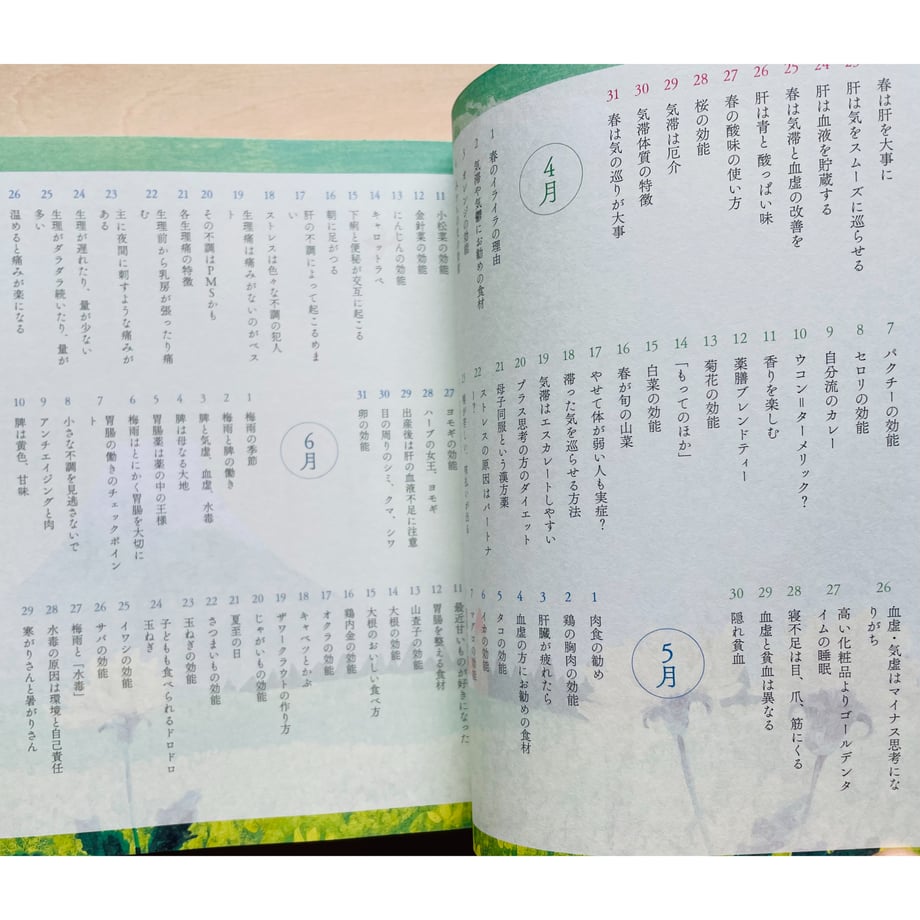 春は肝を大事に
肝は気をスムーズに巡らせる
24 肝は血液を貯蔵する
25 春は気滞と血虚の改善を
26 肝は青と酸っぱい味
27 春の酸味の使い方
28 桜の効能
29 気滞は厄介
30 気滞体質の特徴
31 春は気の巡りが大事
4月
1 春のイライラの理由
2 気滞や気鬱にお勧めの食材
3 オレンジの効能
7 パクチーの効能
8 セロリの効能
9 自分流のカレー
10 ウコン=ターメリック?
11 香りを楽しむ
12 薬膳ブレンドティー
13 菊花の効能
14 「もってのほか」
15 白菜の効能
16 春が旬の山菜
17 やせて体が弱い人も実症?
18 滞った気を巡らせる方法
19 気滞はエスカレートしやすい
20 プラス思考の方のダイエット
21 母子同服という漢方薬
22 ストレスの原因はパートナー?
26 血虚・気虚はマイナス思考になりがち
27 高い化粧品よりゴールデンタイムの睡眠
28 寝不足は目、爪、筋にくる
29 血虚と貧血は異なる
30 隠れ貧血
5月
1 肉食の勧め
2 鶏の胸肉の効能
3 肝臓が疲れたら
4 血虚の方にお勧めの食材
5 タコの効能
6 イカの効能
7 マグロの効能
11 小松菜の効能
12 金針菜の効能
13 にんじんの効能
14 キャロットラペ
15 下痢と便秘が交互に起こる
16 朝に足がつる
17 肝の不調によって起こるめまい
18 ストレスは色々な不調の犯人
19 生理痛は痛みがないのがベスト
20 その不調はPMSかも
21 各生理痛の特徴
22 生理前から乳房が張ったり痛む
23 主に夜間に刺すような痛みがある
24 生理が遅れたり、量が少ない
25 生理がダラダラ続いたり、量が多い
26 温めると痛みが楽になる
27 ヨモギの効能
28 ハーブの女王、ヨモギ
29 出産後は肝の血液不足に注意
30 目の周りのシミ、クマ、シワ
31 卵の効能
6月
1 梅雨の季節
2 梅雨と脾の働き
3 脾と気虚、血虚、水毒
4 脾は母なる大地
5 胃腸薬は薬の中の王様
6 梅雨はとにかく胃腸を大切に
7 胃腸の働きのチェックポイント
8 小さな不調を見逃さないで
9 アンチエイジングと肉
10 脾は黄色、甘味
11 最近甘いものが好きになった
12 胃腸を整える食材
13 山査子の効能
14 大根の効能
15 大根のおいしい食べ方
16 鶏内金の効能
17 オクラの効能
18 キャベツとかぶ
19 ザワークラウトの作り方
20 じゃがいもの効能
21 夏至の日
22 さつまいもの効能
23 玉ねぎの効能
24 子どもも食べられるドロドロ玉ねぎ
25 イワシの効能
26 サバの効能
27 梅雨と「水毒」
28 水毒の原因は環境と自己責任
29 寒がりさんと暑がりさん